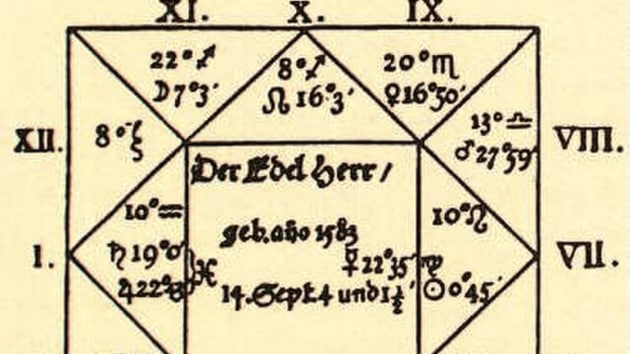 XI. X. IX.
22°♐ 8°♐ 20°♏
☽7°3′ ☊16°3′ ♀16°50′
XII. 8°♑ 13°♎ VIII.
♂27°59′
Der Edel Herr/
10°♒ 10°♌
geb. año 1583
I. ♄19°0′ ☿22°35′ ♍ VII.
♃22° ♓ 14. Sept. 4 und 1½ ☉0°45′